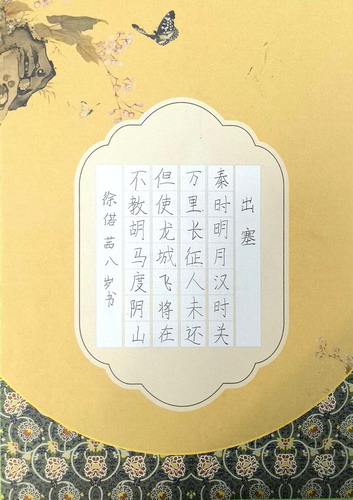 出塞
秦时明月汉时关
万里长征人未还
但使龙城飞将在
不教胡马度阴山
徐偌茜八岁书